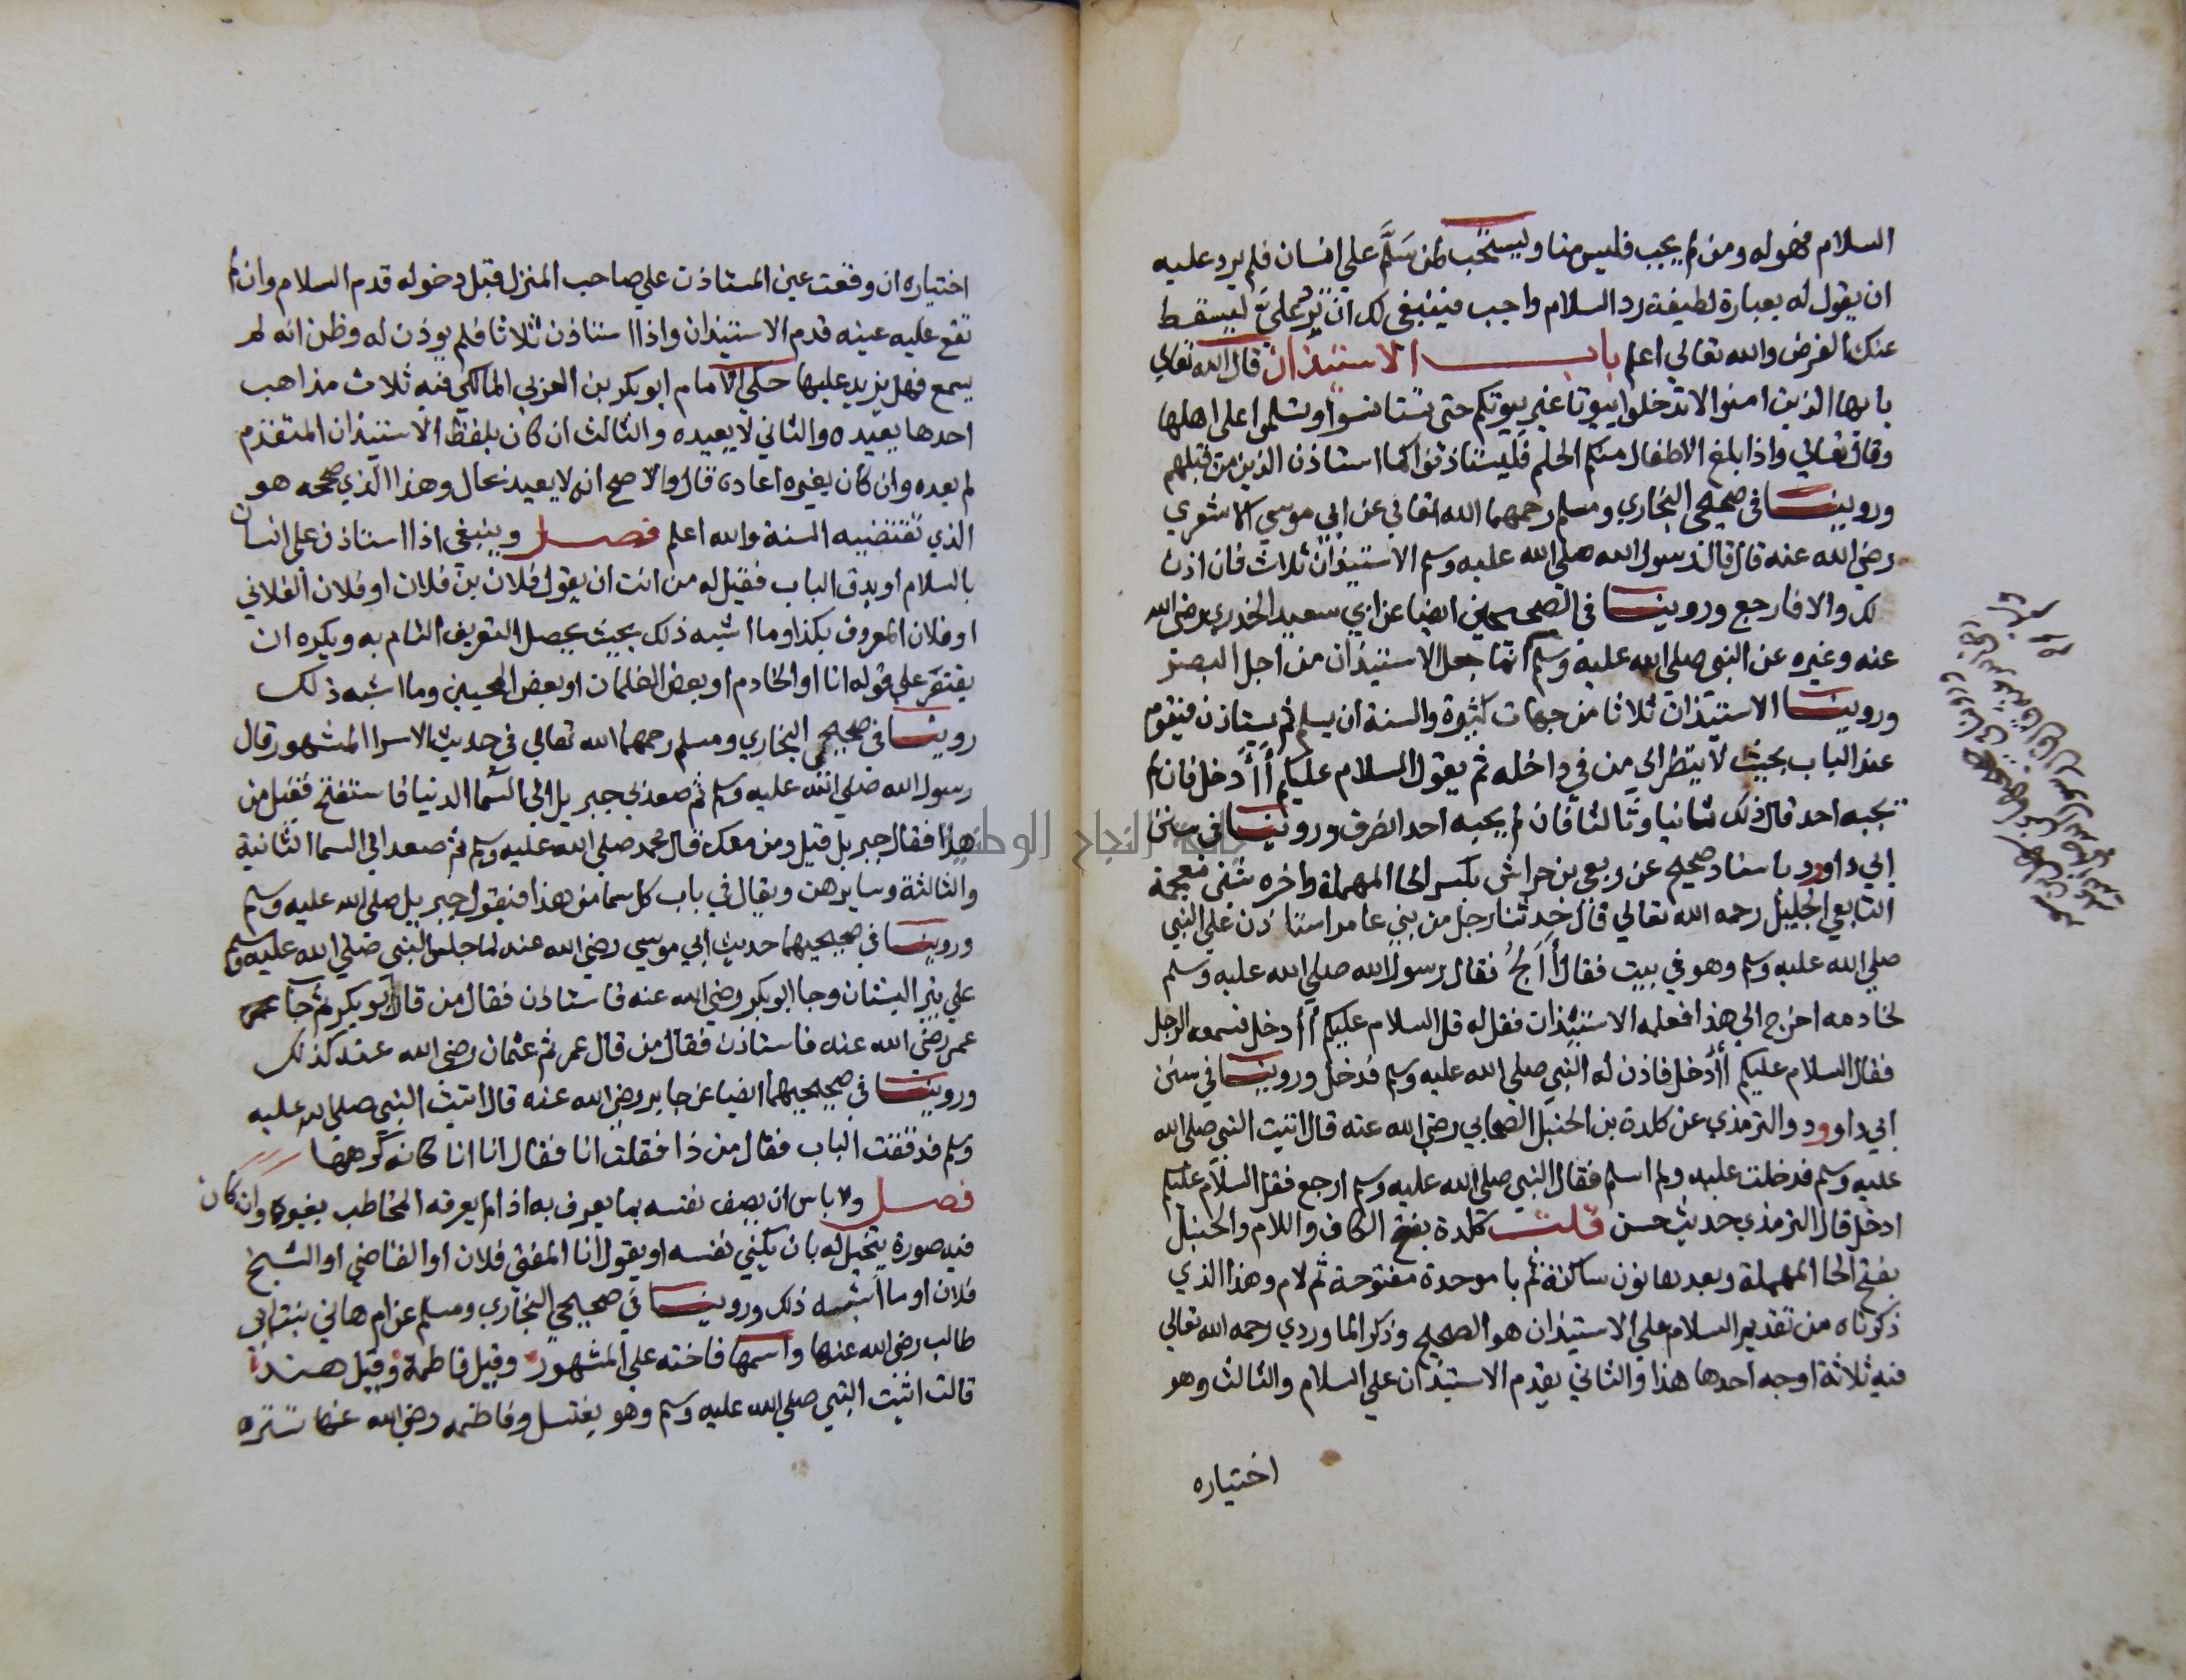 السلام فهوله ومن لم يجب فليس منا ويستحب لمن سَلَّم علي انسان فلم يرد عليه
ان يقول له بعبارة لطيفة رد السلام واجب فينبغي لك ان ترد علي ليسقط
عنك الفرض والله تعالي اعلم باب الاستيذان قال الله تعالي
يا ايها الذين امنوا لا تدخلوا بيوتا غير بيوتكم حتي تستانسوا وتسلموا علي اهلها
وقال تعالي واذا بلغ الاطفال منكم الحلم فليستاذنوا كما استاذن الذين من قبلهم
وروينا في صحيحي البخاري ومسلم رحمهما الله تعالي عن ابي موسي الاشعري
رضي الله عنه قال قال رسول الله صلي الله عليه وسلم الاستيذان ثلاث فان اذن
لك والا فارجع وروينا في الصحيحين ايضا عن ابي سعيد الخدري رضي الله
عنه وغيره عن النبي صلي الله عليه وسلم انما جعل الاستيذان من اجل البصر
وروينا الاستيذان ثلاثا من جهات كثيرة والسنة ان يسلم ثم يستاذن فيقوم
عند الباب بحيث لا ينظر الي من في داخله ثم يقول السلام عليكم أأدخل فان لم
يجبه احد قال ذلك ثانيا وثالثا فان لم يجبه احد انصرف وروينا في سنن
ابي داوود باسناد صحيح عن ربعي بن حراش بكسر الحا المهملة واخره شين معجمة
التابعي الجليل رحمه الله تعالي قال حدثنا رجل من بني عامر استاذن علي النبي
صلي الله عليه وسلم وهو في بيت فقال أَاَلجُ فقال رسول الله صلي الله عليه وسلم
لخادمه اخرج الي هذا فعلمه الاستيذان فقل له قل السلام عليكم أأدخل فسمعه الرجل
فقال السلام عليكم أأدخل فاذن له النبي صلي الله عليه وسلم فدخل وروينا في سنن
ابي داوود والترمذي عن كلدة بن الحنبل الصحابي رضي الله عنه قال اتيت النبي صلي الله
عليه وسلم فدخلت عليه ولم اسلم فقال النبي صلي الله عليه وسلم ارجع فقل السلام عليكم
ادخل قال الترمذي حديث حسن قلت كلدة بفتح الكاف واللام والحنبل
بفتح الحا المهملة وبعدها نون ساكنة ثم با موحدة مفتوحة ثم لام وهذا الذي
ذكرناه من تقديم السلام علي الاستيذان هو الصحيح وذكر الماوردي رحمه الله تعالي
فيه ثلاثة اوجه احدها هذا والثاني يقدم الاستيذان علي السلام والثالث وهو
اختياره
اختياره ان وقعت عين المستاذن علي صاحب المنزل قبل دخوله قدم السلام وان لم
تقع عليه عينه قدم الاستيذان واذا استاذن ثلاثا فلم يوذن له وظن انه لم
يسمع فهل يزيد عليها حكي الامام ابو بكر بن العربي المالكي فيه ثلاث مذاهب
احدها يعيده والثاني لا يعيده والثالث ان كان بلفظ الاستيذان المتقدم
لم يعده وان كان بغيره اعاده قال والاصح انه لا يعيد بحال وهذا الذي صححه هو
الذي تقتضيه السنة والله اعلم فصل وينبغي اذا استاذن علي انسان
بالسلام او بدق الباب فقيل له من انت ان يقول فلان بن فلان او فلان الفلاني
او فلان المعروف بكذا وما اشبه ذلك بحيث يحصل التعريف التام به ويكره ان
يقتصر علي قوله انا او الخادم او بعض الغلمان او بعض المحبين وما اشبه ذلك
روينا في صحيحي البخاري ومسلم رحمهما الله تعالي في حديث الاسرا المشهور قال
رسول الله صلي الله عليه وسلم ثم صعد بي جبريل الي السما الدنيا فاستفتح فقيل من
هذا فقال جبريل قيل ومن معك قال محمد صلي الله عليه وسلم ثم صعد الي السما الثانية
والثالثة وسايرهن ويقال في باب كل سما من هذا فيقول جبريل صلي الله عليه وسلم
وروينا في صحيحيهما حديث ابي موسي رضي الله عنه لما جلس النبي صلي الله عليه وسلم
علي بير البستان وجا ابو بكر رضي الله عنه فاستاذن فقال من قال ابو بكر ثم جا
عمر رضي الله عنه فاستاذن فقال من قال عمر ثم عثمان رضي الله عنه كذلك
وروينا في صحيحيهما ايضا عن جابر رضي الله عنه قال اتيت النبي صلي الله عليه
وسلم فدققت الباب فقال من ذا فقلت انا فقال انا انا كانه كرهها
فصل ولا باس ان يصف نفسه بما يعرف به اذا لم يعرفه المخاطب بغيره وان كان
فيه صورة تبجيل له بان يكني نفسه او يقول انا المفتي فلان او القاضي او الشيخ
فلان او ما اشبه ذلك وروينا في صحيحي البخاري ومسلم عن ام هاني بنت ابي
طالب رضي الله عنها واسمها فاخته علي المشهور وقيل فاطمة وقيل هند
قالت اتيت النبي صلي الله عليه وسلم وهو يغتسل وفاطمه رضي الله عنها تستره
جامعة النجاح الوطنية